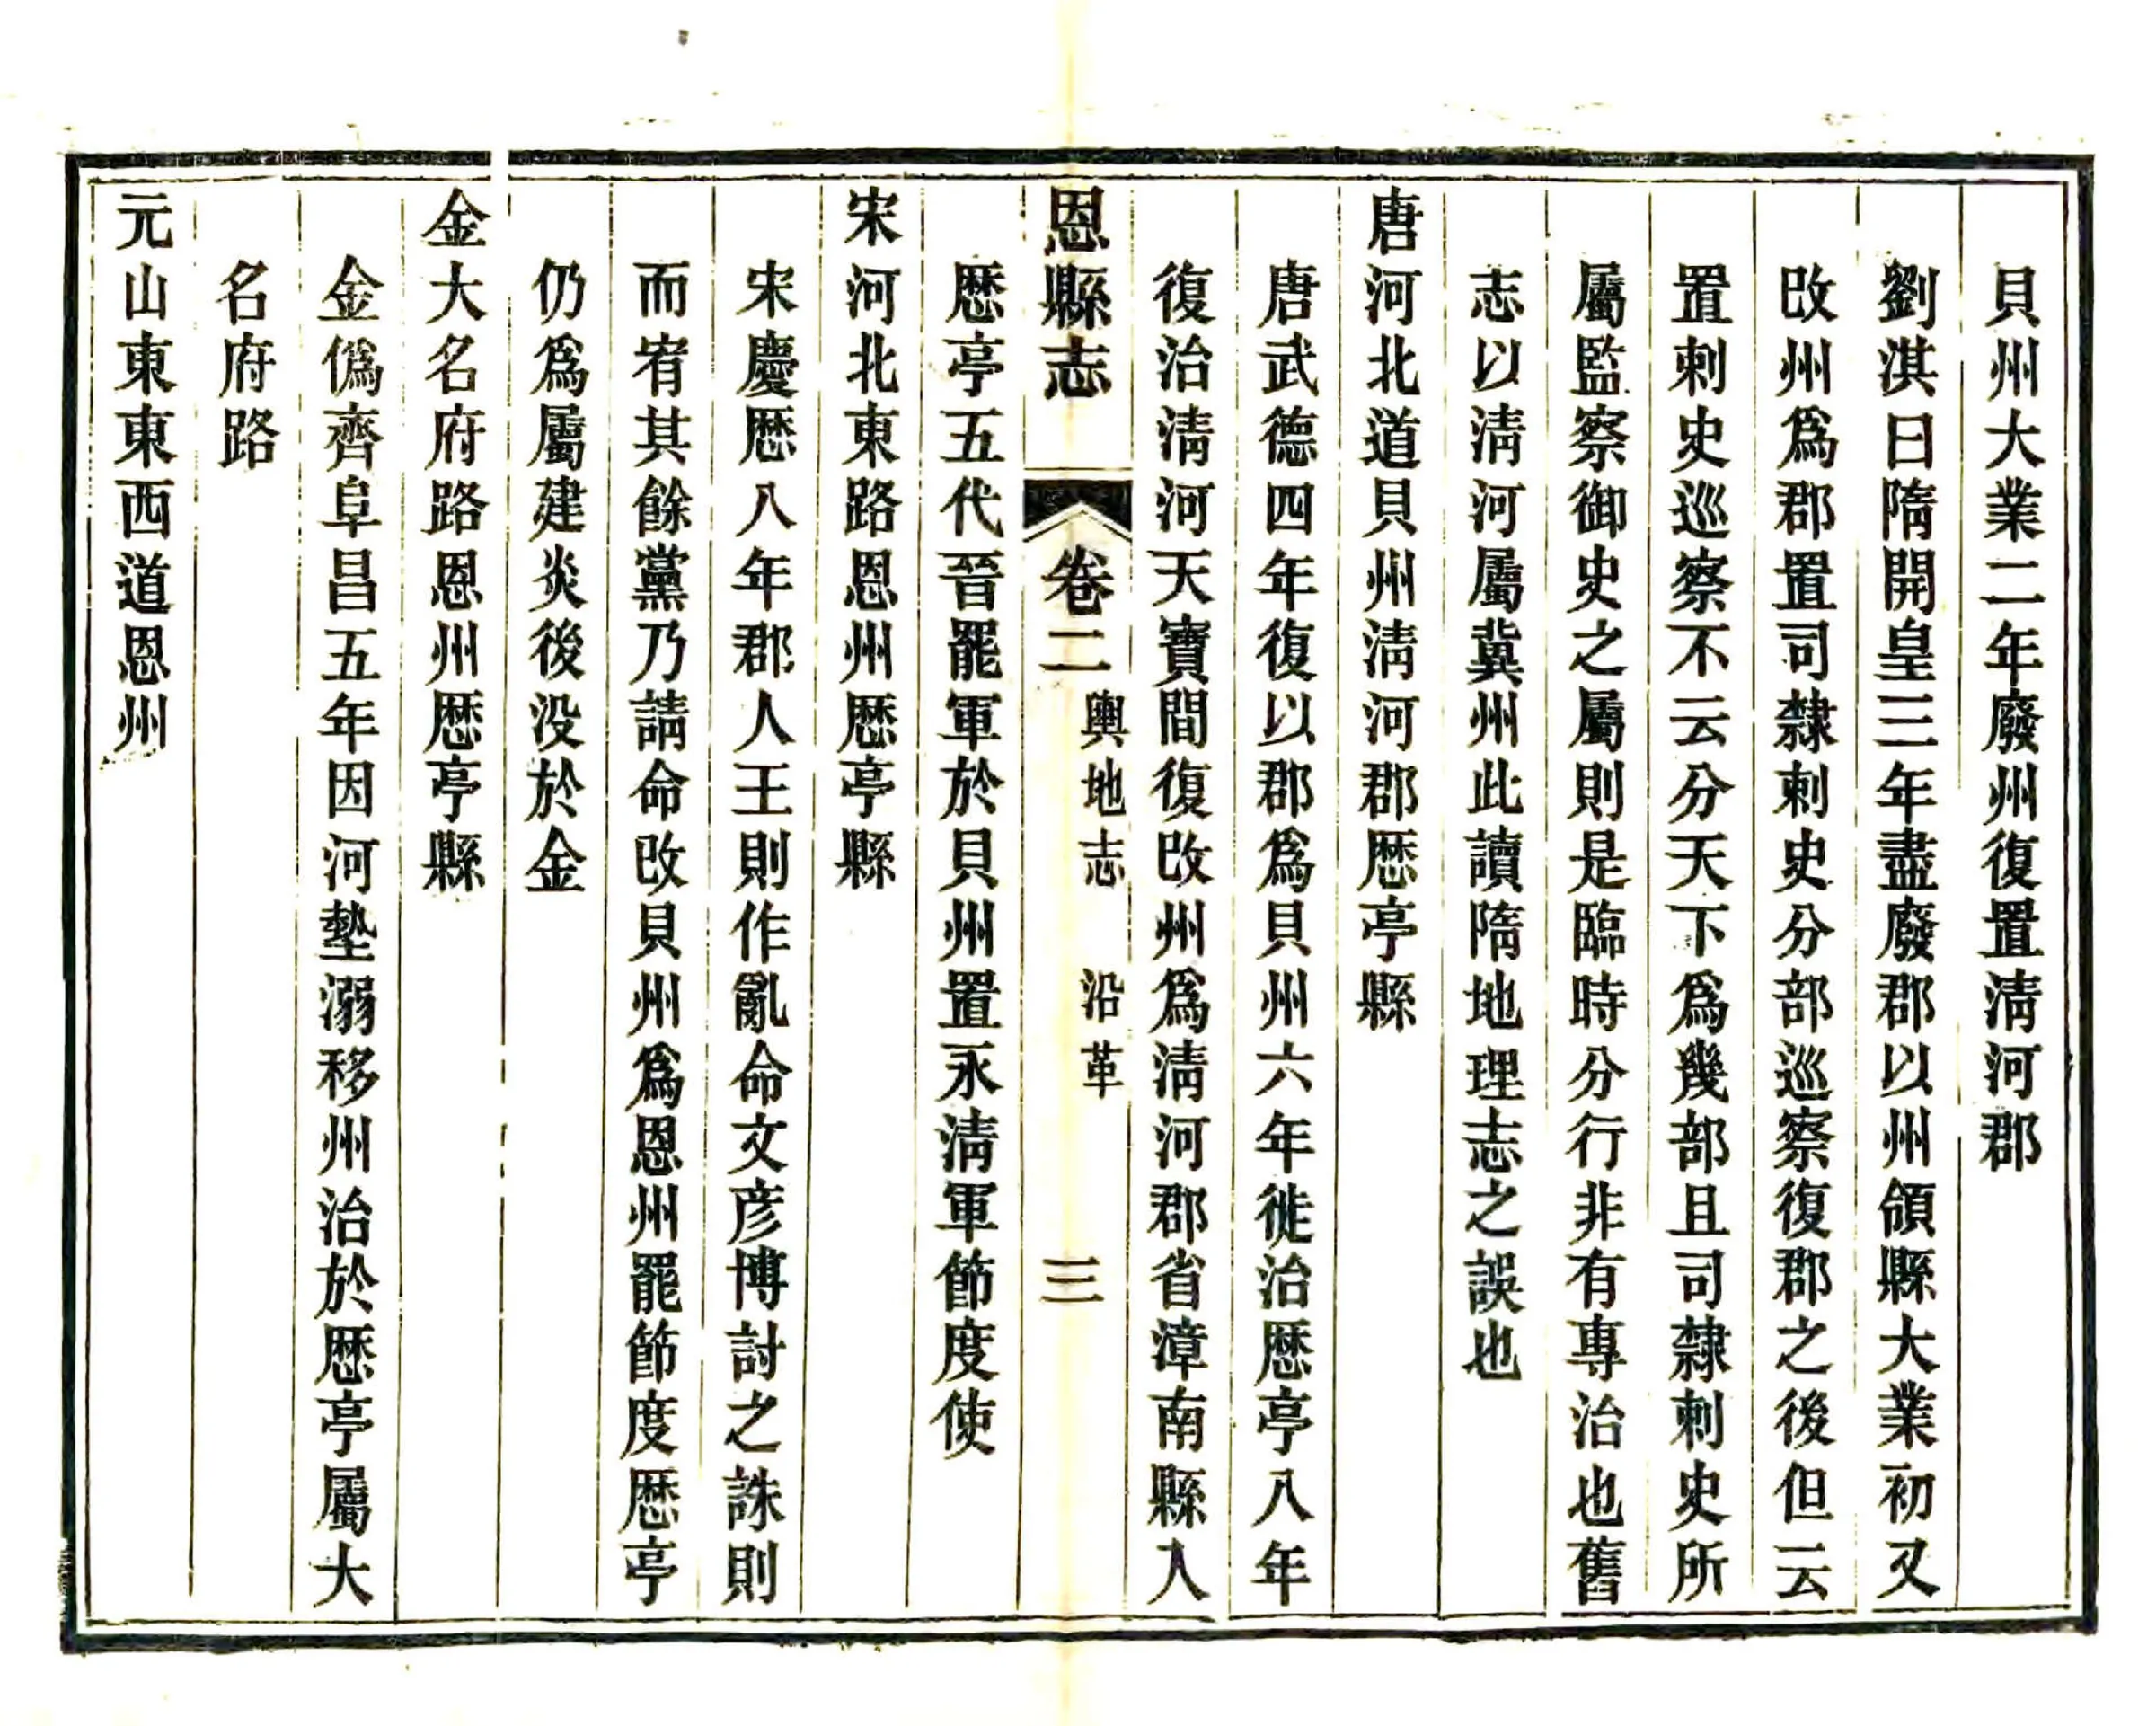 貝州大業二年廢州復置淸河郡
劉淇曰隋開皇三年盡廢郡以州領縣大業初又
改州爲郡置司隸刺史分部巡察復郡之後但云
置刺史巡察不云分天下爲幾部且司隸刺史所
屬監察御史之屬則是臨時分行非有專治也舊
志以淸河屬冀州此讀隋地理志之誤也
唐河北道貝州淸河郡歷亭縣
唐武德四年復以郡爲貝州六年徙治歷亭八年
復治淸河天寶間復改州爲淸河郡省漳南縣入
恩縣志 卷二 輿地志 沿革 三
歷亭五代晉罷軍於貝州置永淸軍節度使
宋河北東路恩州歷亭縣
宋慶歷八年郡人王則作亂命文彦博討之誅則
而宥其餘黨乃請命改貝州爲恩州罷節度歷亭
仍爲屬建炎後没於金
金大名府路恩州歷亭縣
金僞齊阜昌五年因河墊溺移州治於歷亭屬大
名府路
元山東東西道恩州